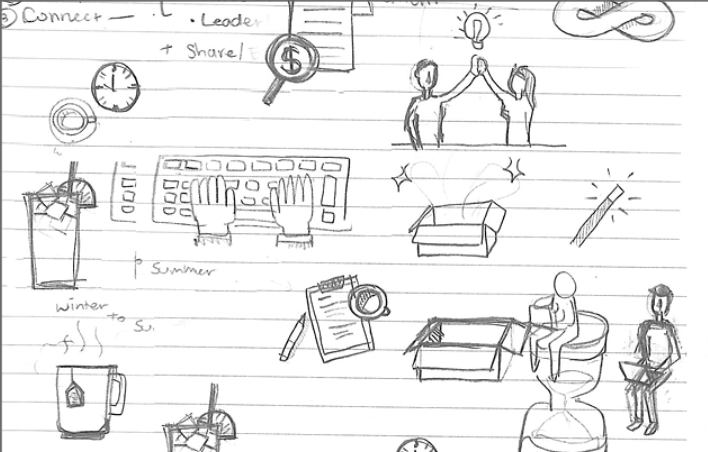 ③ Connect —
. Leader
+ Share/
$
Summer
winter
to Su